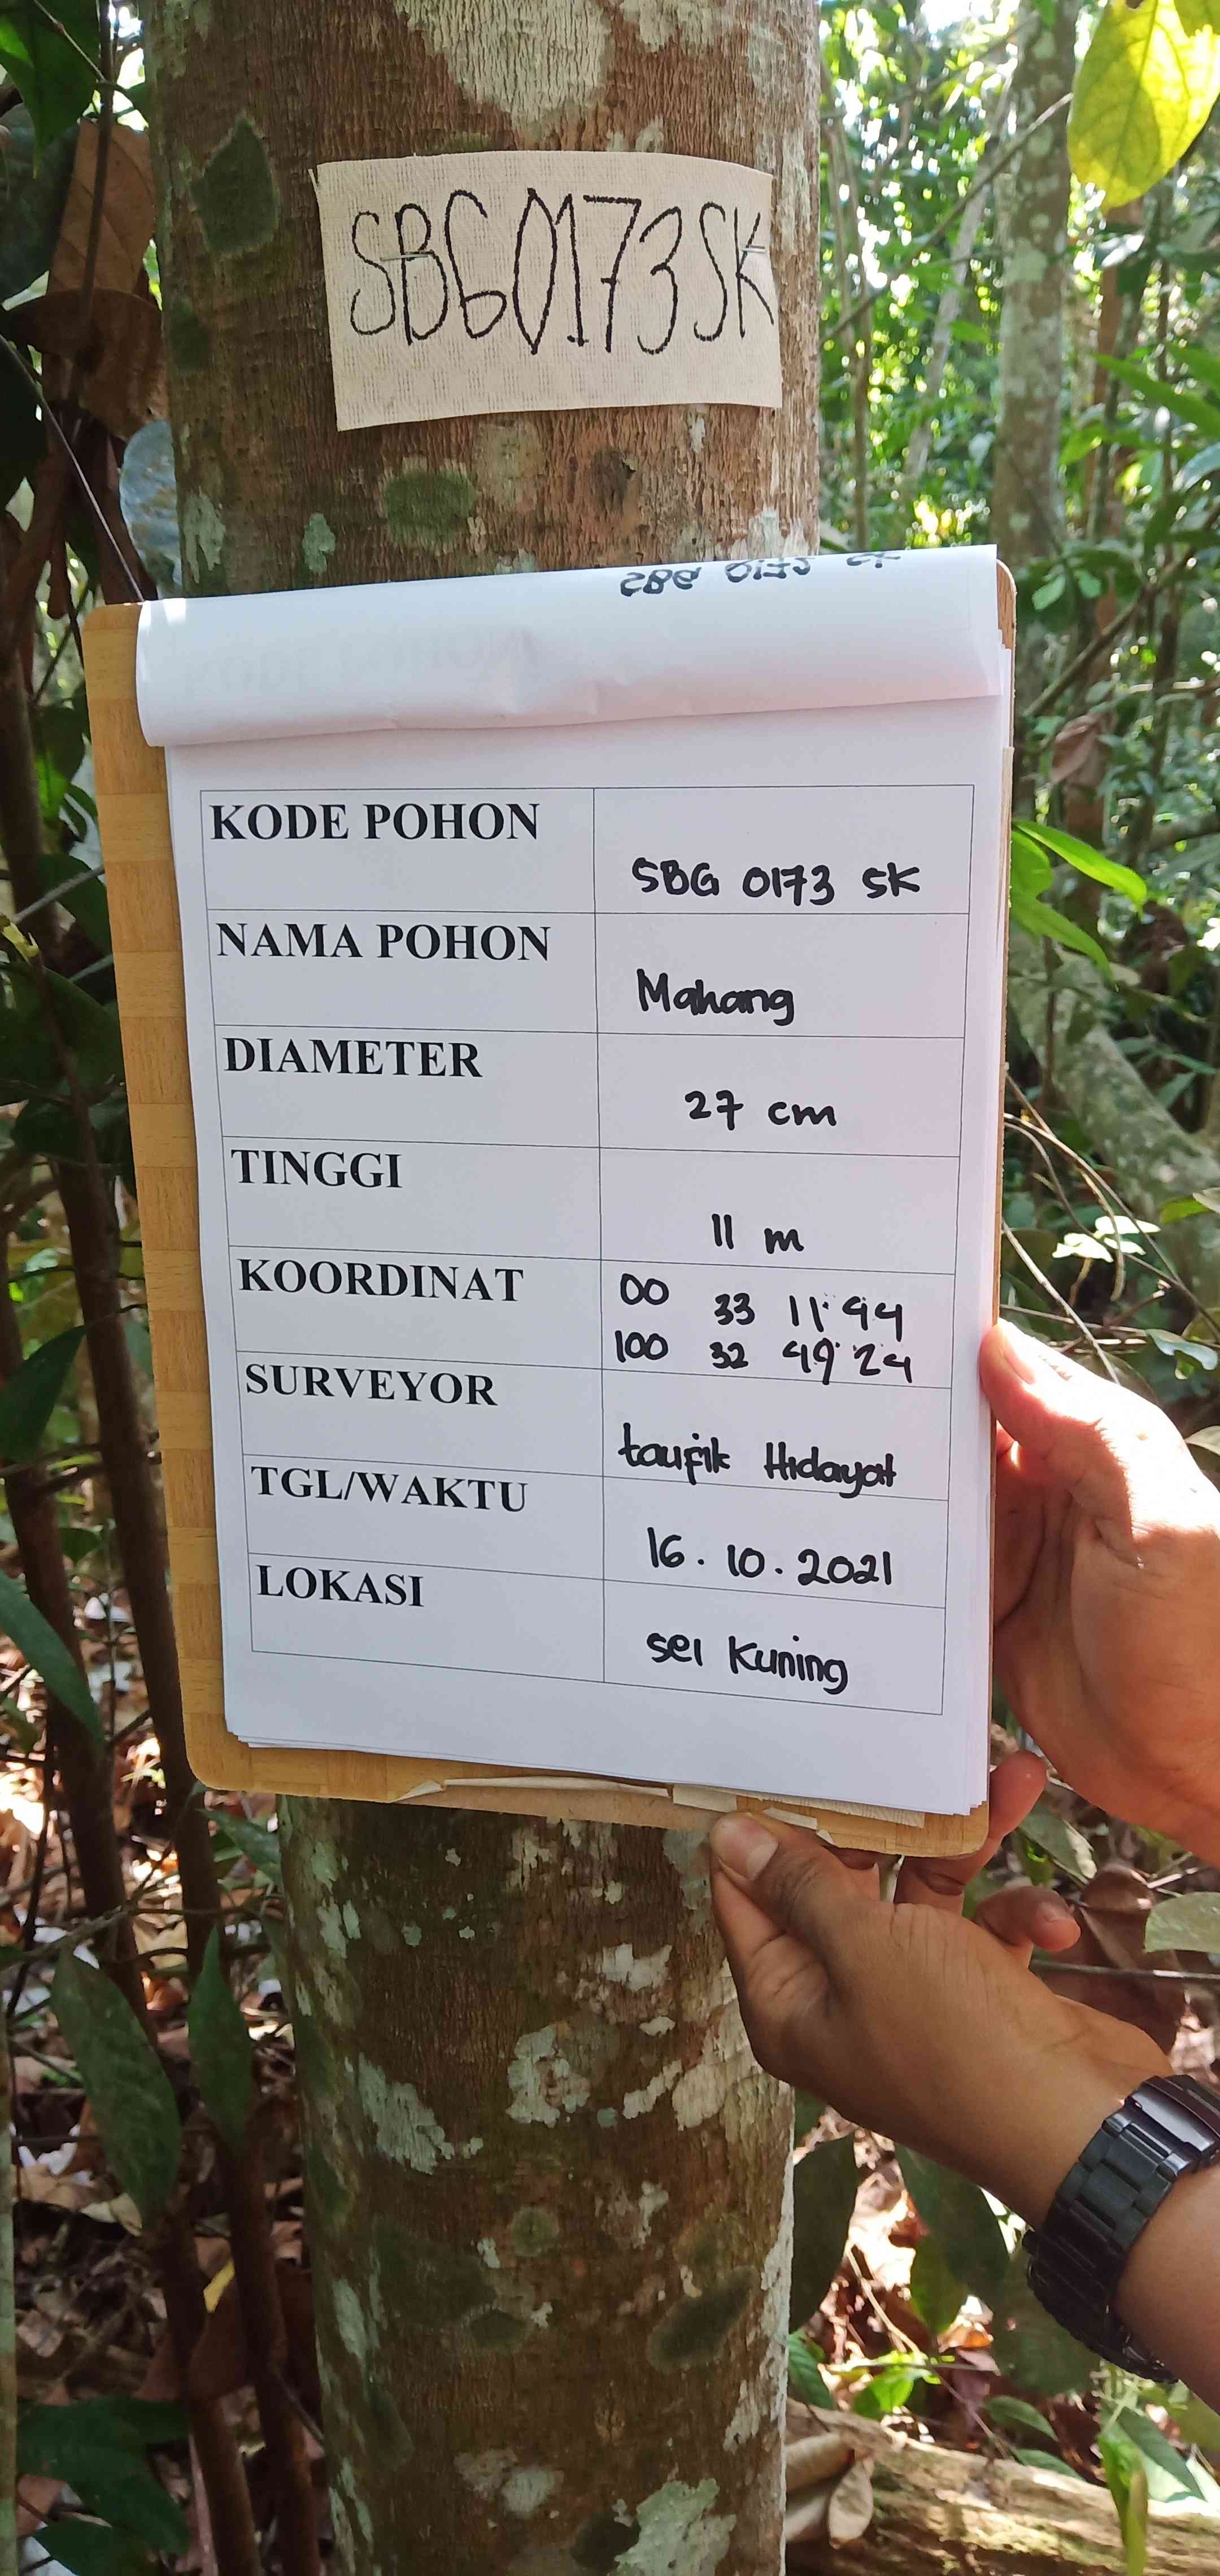 SBG0173SK
SBG 0172 SK
KODE POHON
SBG 0173 SK
NAMA POHON
Mahang
DIAMETER
27 cm
TINGGI
11 m
KOORDINAT
00 33 11.94
100 32 49.24
SURVEYOR
taufik Hidayat
TGL/WAKTU
16.10.2021
LOKASI
sei Kuning